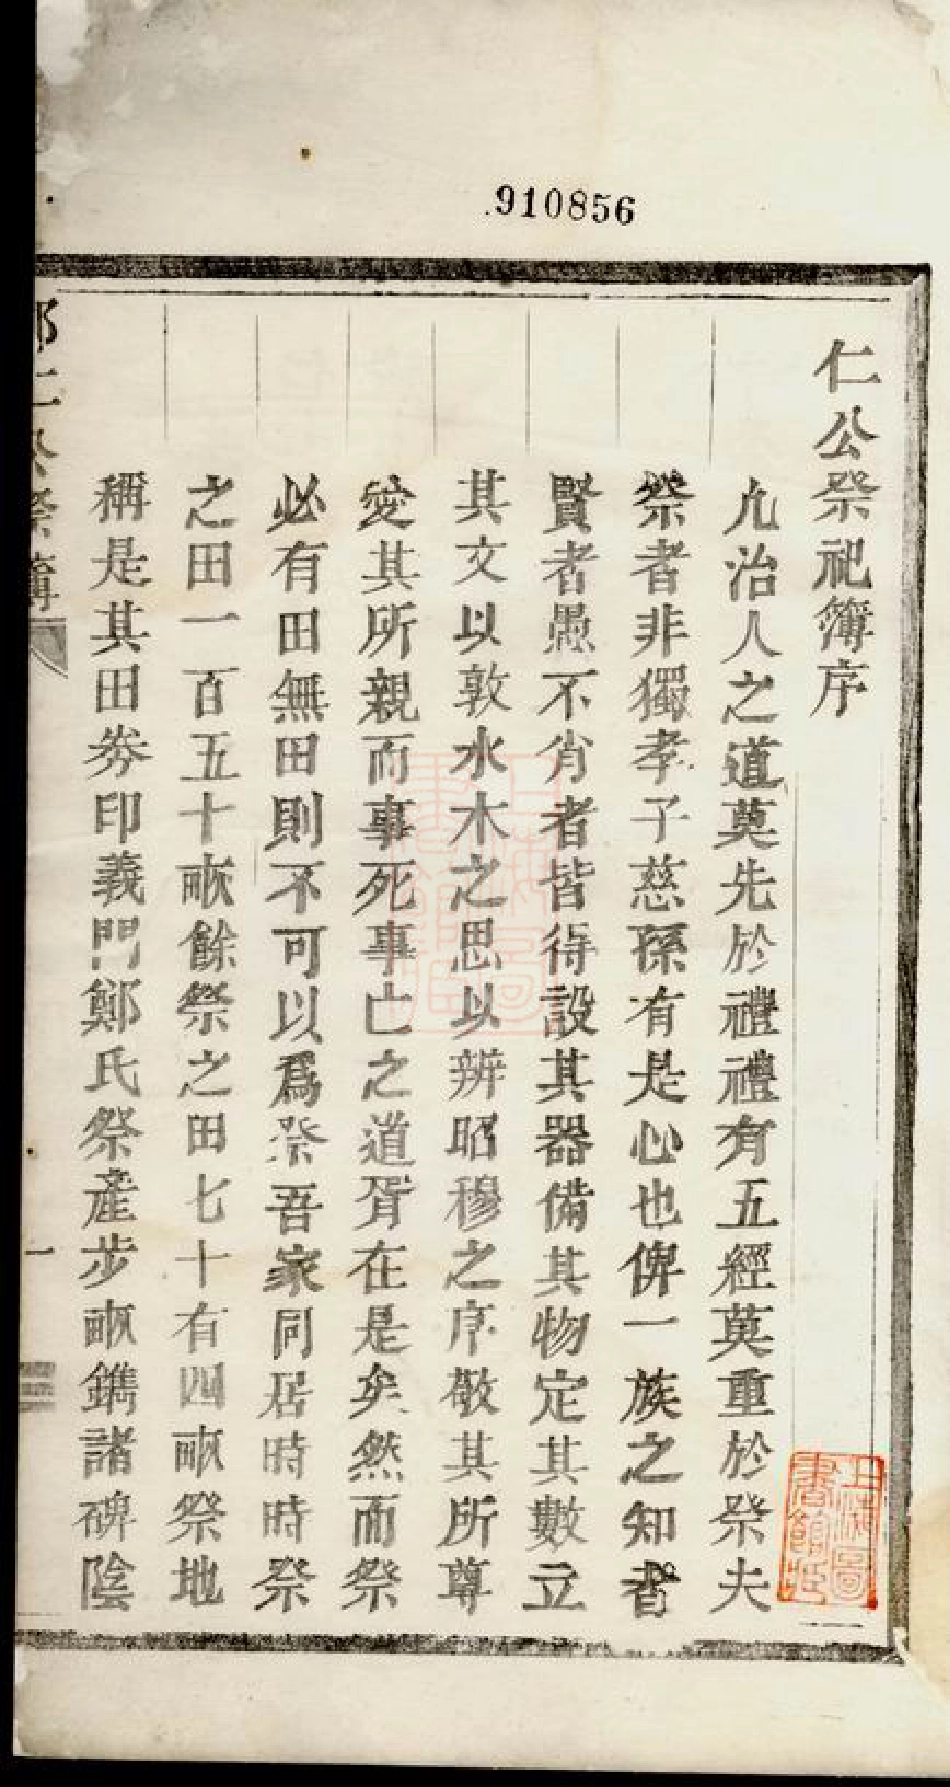 .910856
仁公祭祀簿序
凡治人之道莫先於禮禮有五經莫重於祭夫
祭者非獨孝子慈孫有是心也俾一族之知者
賢者愚不肖者皆得設其器備其物定其數立
其文以敦水木之思以辨昭穆之序敬其所尊
愛其所親而事死事亡之道胥在是矣然而祭
必有田無田則不可以爲祭吾家同居時時祭
之田一百五十畝餘祭之田七十有四畝祭地
稱是其田券印義門鄭氏祭產步畝鐫諸碑陰
一
上海圖書館藏